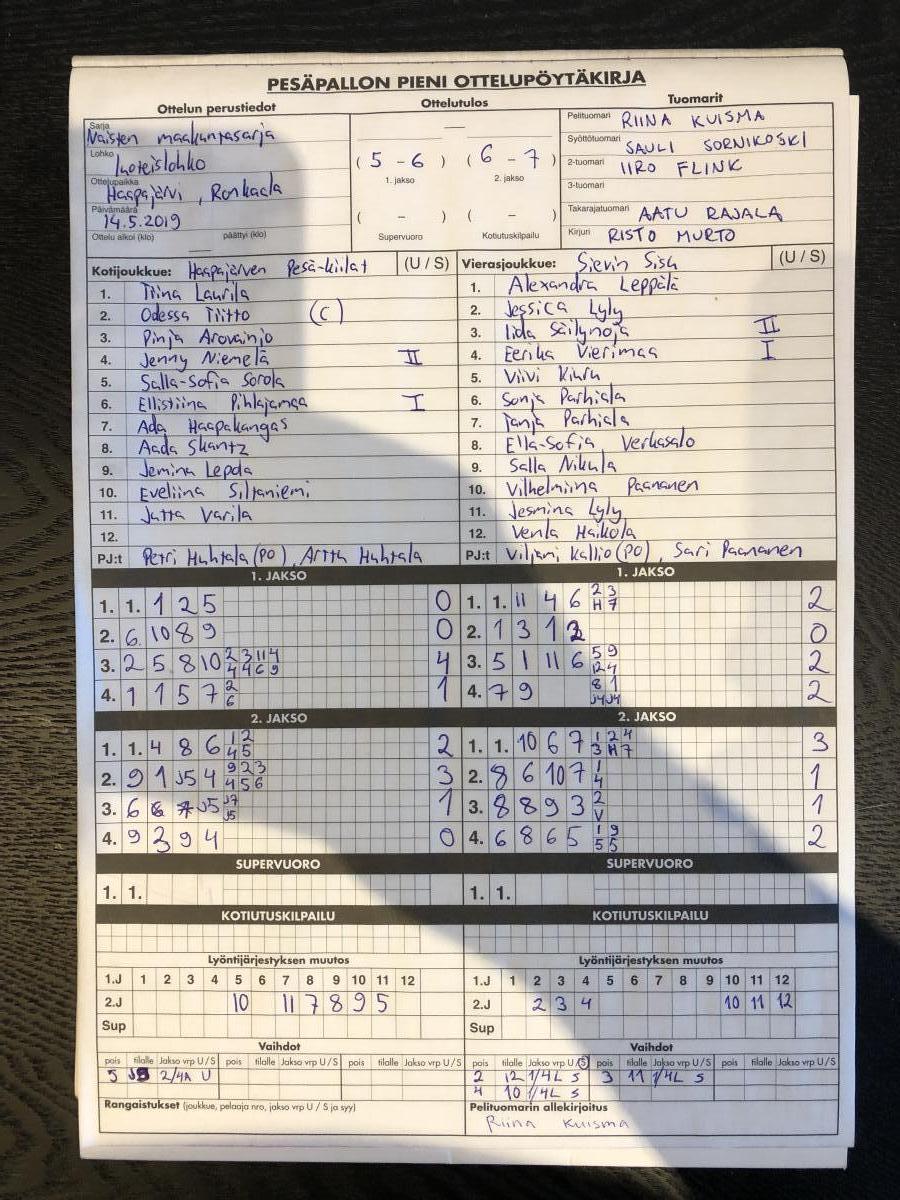 PESÄPALLON PIENI OTTELUPÖYTÄKIRJA
Ottelun perustiedot
Sarja Naisten maakuntasarja
Lohko luoteislohko
Ottelupaikka Haapajärvi, Ronkaala
Päivämäärä 14.5.2019
Ottelu alkoi (klo) päättyi (klo)
Ottelutulos
(5 - 6) (6 - 7)
1. jakso 2. jakso
( - ) ( - )
Supervuoro Kotiutuskilpailu
Tuomarit
Pelituomari RIINA KUISMA
Syöttötuomari SAULI SORNIKOSKI
2-tuomari IIRO FLINK
3-tuomari
Takarajatuomari AATU RAJALA
Kirjuri RISTO MURTO
Kotijoukkue: Haapajärven Pesä-kiilat (U / S)
1. Tiina Laurila
2. Odessa Tiitto (C)
3. Pinja Arovainio
4. Jenny Niemelä II
5. Salla-Sofia Sorola
6. Ellistiina Pihlajamaa I
7. Ada Haapakangas
8. Aada Skantz
9. Jemina Lepola
10. Eveliina Siljaniemi
11. Jutta Varila
12.
PJ:t Petri Huhtala (PO), Arttu Huhtala
Vierasjoukkue: Sievin Sisu (U / S)
1. Alexandra Leppälä
2. Jessica Lyly
3. Iida Säilynoja II
4. Eerika Vierimaa I
5. Viivi Kiuru
6. Sonja Parhiala
7. Tanja Parhiala
8. Ella-Sofia Verkasalo
9. Salla Nikula
10. Vilhelmiina Paananen
11. Jesmina Lyly
12. Venla Haikola
PJ:t Viljami Kallio (PO), Sari Paananen
1. JAKSO
1. 1. 1 2 5 0
2. 6 10 8 9 0
3. 2 5 8 10 2 3 11 4 4 4 6 9 4
4. 1 1 5 7 2 6 1
1. JAKSO
1. 1. 11 4 6 2 3 H 7 2
2. 1 3 1 2 0
3. 5 1 11 6 5 9 12 4 2
4. 7 9 8 1 J4 J4 2
2. JAKSO
1. 1. 4 8 6 1 2 4 5 2
2. 9 1 J5 4 9 2 3 4 5 6 3
3. 6 J5 J7 J5 1
4. 9 3 9 4 0
2. JAKSO
1. 1. 10 6 7 1 2 4 3 H 7 3
2. 8 6 10 7 1 4 1
3. 8 8 9 3 2 V 1
4. 6 8 6 5 1 9 5 5 2
SUPERVUORO
1. 1.
SUPERVUORO
1. 1.
KOTIUTUSKILPAILU
KOTIUTUSKILPAILU
Lyöntijärjestyksen muutos
1.J 1 2 3 4 5 6 7 8 9 10 11 12
2.J 10 11 7 8 9 5
Sup
Lyöntijärjestyksen muutos
1.J 1 2 3 4 5 6 7 8 9 10 11 12
2.J 2 3 4 10 11 12
Sup
Vaihdot
pois tilalle Jakso vrp U / S pois tilalle Jakso vrp U / S pois tilalle Jakso vrp U / S
5 2/4A U
Vaihdot
pois tilalle Jakso vrp U / S pois tilalle Jakso vrp U / S pois tilalle Jakso vrp U / S
2 12 1/4L S 3 11 1/4L S
4 10 1/4L S
Rangaistukset (joukkue, pelaaja nro, jakso vrp U / S ja syy)
Pelituomarin allekirjoitus
Riina Kuisma